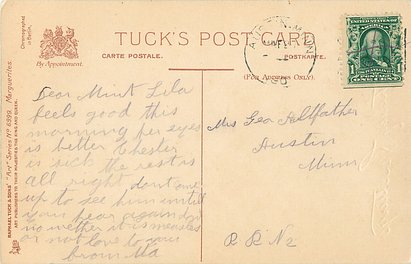 Chromographed in Berlin.
RAPHAEL TUCK & SONS' "Art" Series Nº 6899. Marguerites.
ART PUBLISHERS TO THEIR MAJESTIES THE KING AND QUEEN.
By Appointment.
TUCK'S POST CARD
CARTE POSTALE.
POSTKARTE.
(FOR ADDRESS ONLY)
Dear Mint Lila
feels good this
morning her eyes
is better Chester
is sick the rest is
all right dont come
up to see him untill
you hear again
no wether it is measles
or not love to you
from Ma
Mrs Geo
Austin
Minn
R R N2
UNITED STATES OF AMERICA
1
1